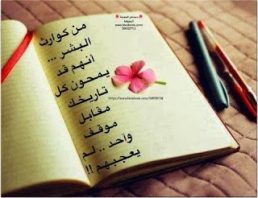 من كوارث
البشر ...
أنهم قد
يمحون كل
تاريخك
مقابل
موقف
واحد .. لم
يعجبهم !!